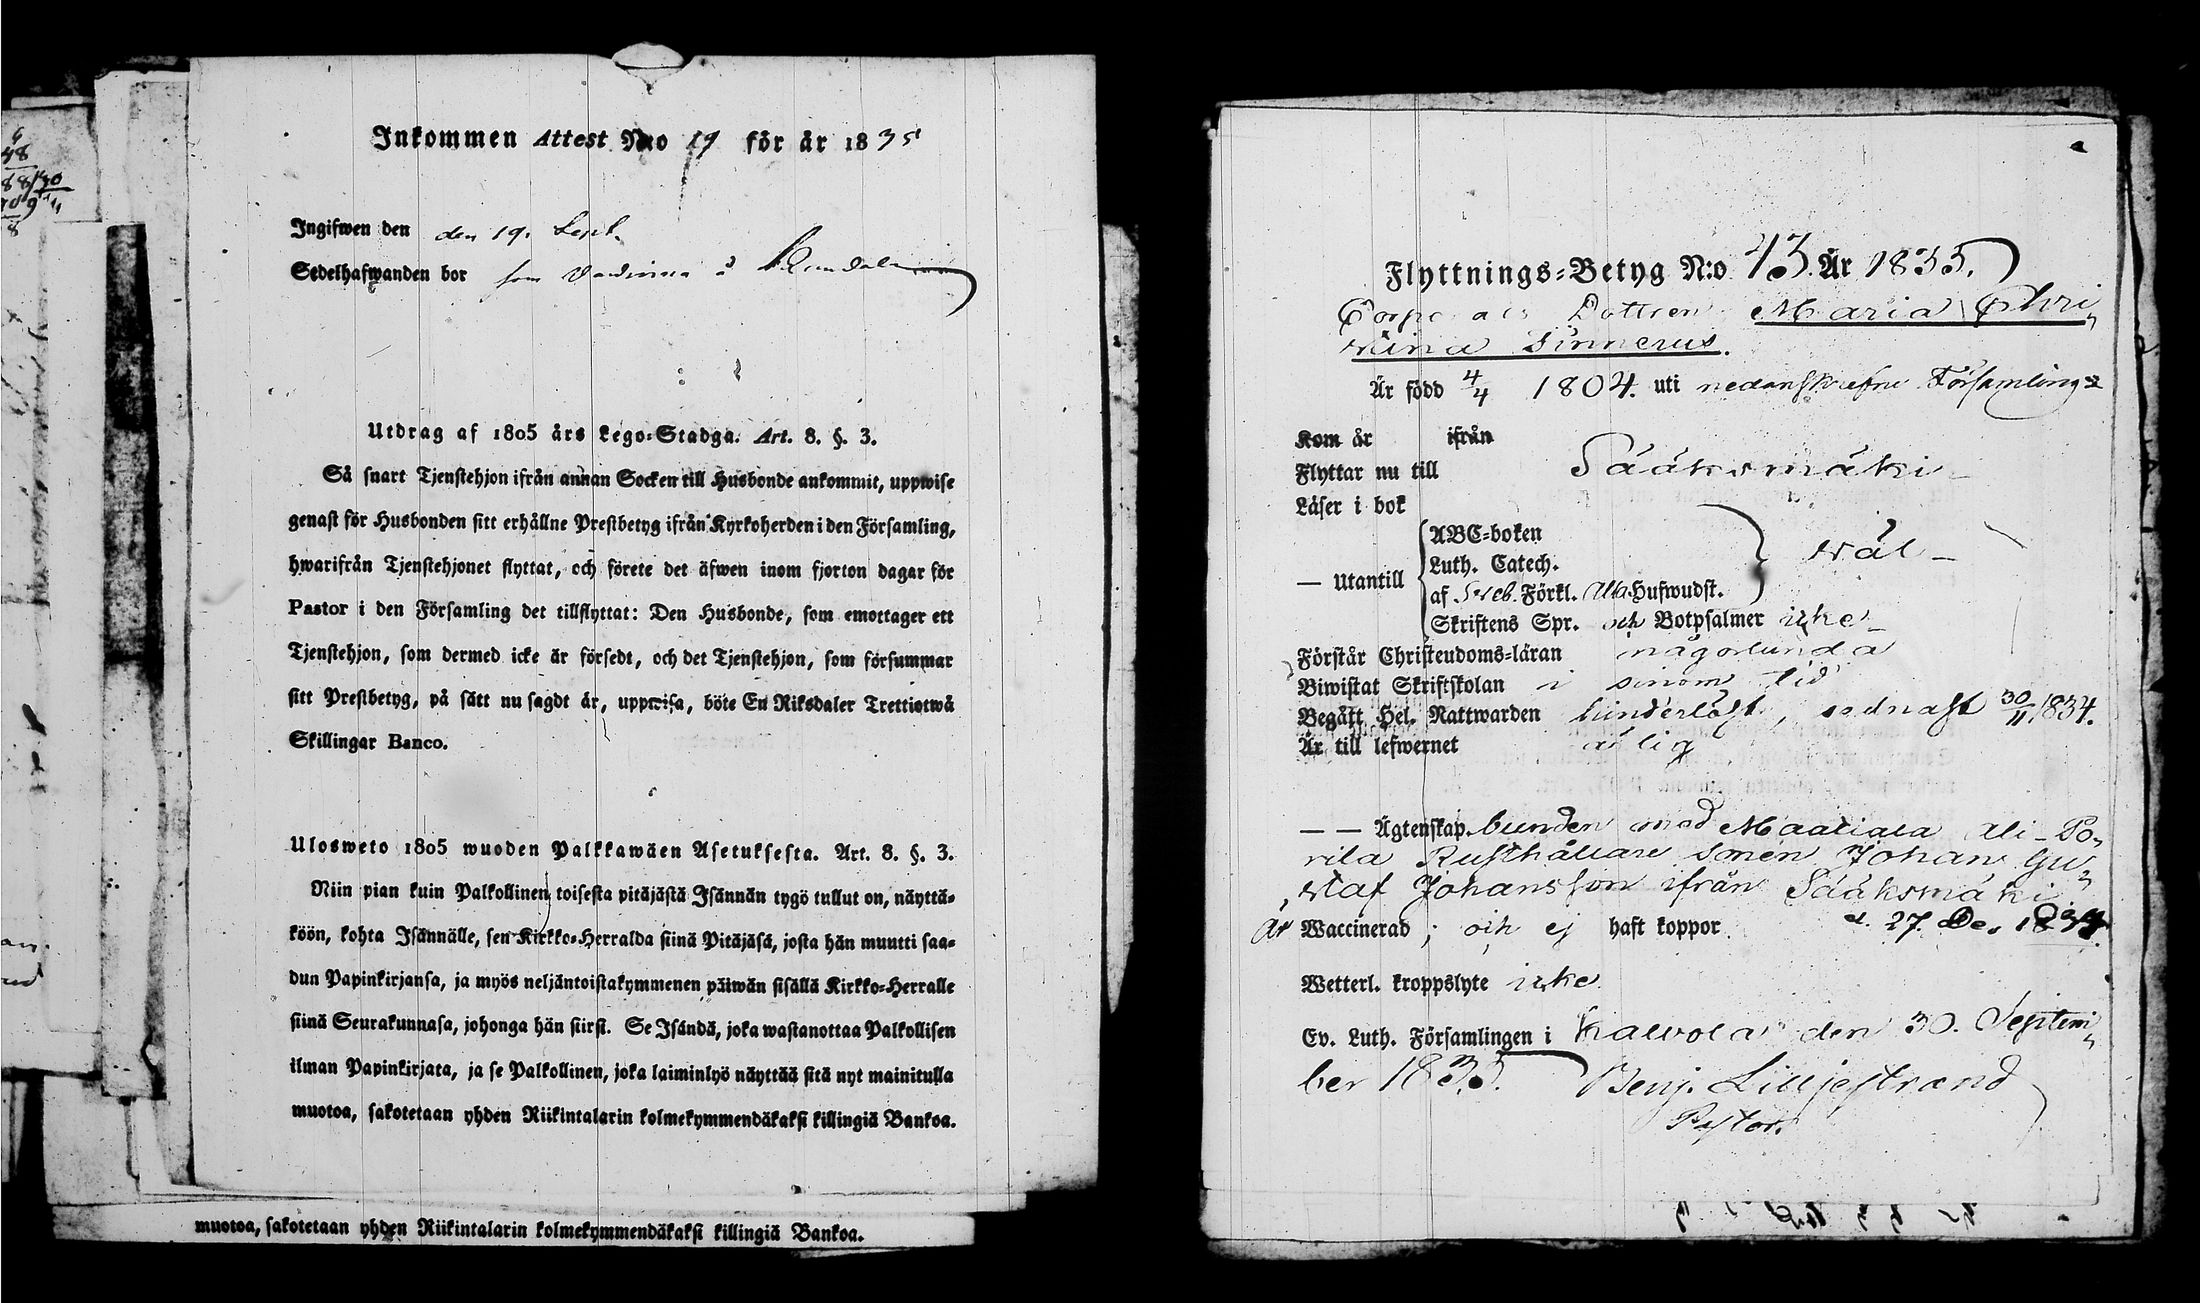 Inkommen Attest N:o 19 för år 1835
Ingifwen den den 19. Sept.
Sedelhafwanden bor som
Utdrag af 1805 års Lego-Stadga. Art. 8. §. 3.
Så snart Tjenstehjon ifrån annan Socken till Husbonde ankommit, uppwise
genast för Husbonden sitt erhållne Prestbetyg ifrån Kyrkoherden i den Församling,
hwarifrån Tjenstehjonet flyttat, och förete det äfwen inom fjorton dagar för
Pastor i den Församling det tillflyttat: Den Husbonde, som emottager ett
Tjenstehjon, som dermed icke är försedt, och det Tjenstehjon, som försummar
sitt Prestbetyg, på sätt nu sagdt är, uppwisa, böte En Riksdaler Trettiotwå
Skillingar Banco.
Ulosweto 1805 wuoden Palkkawäen Asetuksesta. Art. 8. §. 3.
Niin pian kuin Palkollinen toisesta pitäjästä Isännän tygö tullut on, näyttä-
köön, kohta Isännälle, sen Kirkko-Herralda siinä Pitäjäsä, josta hän muutti saa-
dun Papinkirjansa, ja myös neljäntoistakymmenen päiwän sisällä Kirkko-Herralle
siinä Seurakunnasa, johonga hän siirst. Se Isändä, joka wastanottaa Palkollisen
ilman Papinkirjata, ja se Palkollinen, joka laiminlyö näyttää sitä nyt mainitulla
muotoa, sakotetaan yhden Riikintalarin kolmekymmendäkaksi killingiä Bankoa.
muotoa, sakotetaan yhden Riikintalarin kolmekymmendäkaksi killingiä Bankoa.
Flyttnings-Betyg N:o 43. År 1835.
Corporals Dottren Maria Chri-
stina Sinnerus.
Är född 4/4 1804. uti nedanskrefne Församling
Kom år ifrån
Flyttar nu till Sääksmäki
Läser i bok
— Utantill
ABC-boken
Luth. Catech.
af Sveb. Förkl. Alla Hufwudst.
wäl
Skriftens Spr. och Botpsalmer icke
Förstår Christendoms-läran någorlunda
Biwistat Skriftskolan i sinom tid
Begått Hel. Nattwarden hinderlöst, sednast 30/11 1834.
Är till lefwernet ärlig
— — Ägtenskap. bunden med Maatiala Ali-Po-
rila Rusthållare sonen Johan Gu-
staf Johansson ifrån Sääksmäki
d. 27. Dec. 1834.
är Waccinerad; och ej haft koppor
Wetterl. kroppslyte icke
Ev. Luth. Församlingen i Kalvola den 30. Septem-
ber 1835. Benj. Lilljestrand
Pastor.